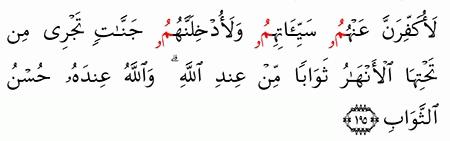 لَأُكَفِّرَنَّ عَنْهُمُۥ سَيِّـَٔاتِهِمُۥ وَلَأُدْخِلَنَّهُمُۥ جَنَّـٰتٍ تَجْرِى مِن
تَحْتِهَا ٱلْأَنْهَـٰرُ ثَوَابًا مِّنْ عِندِ ٱللَّهِ ۗ وَٱللَّهُ عِندَهُۥ حُسْنُ
ٱلثَّوَابِ ﴿١٩٥﴾